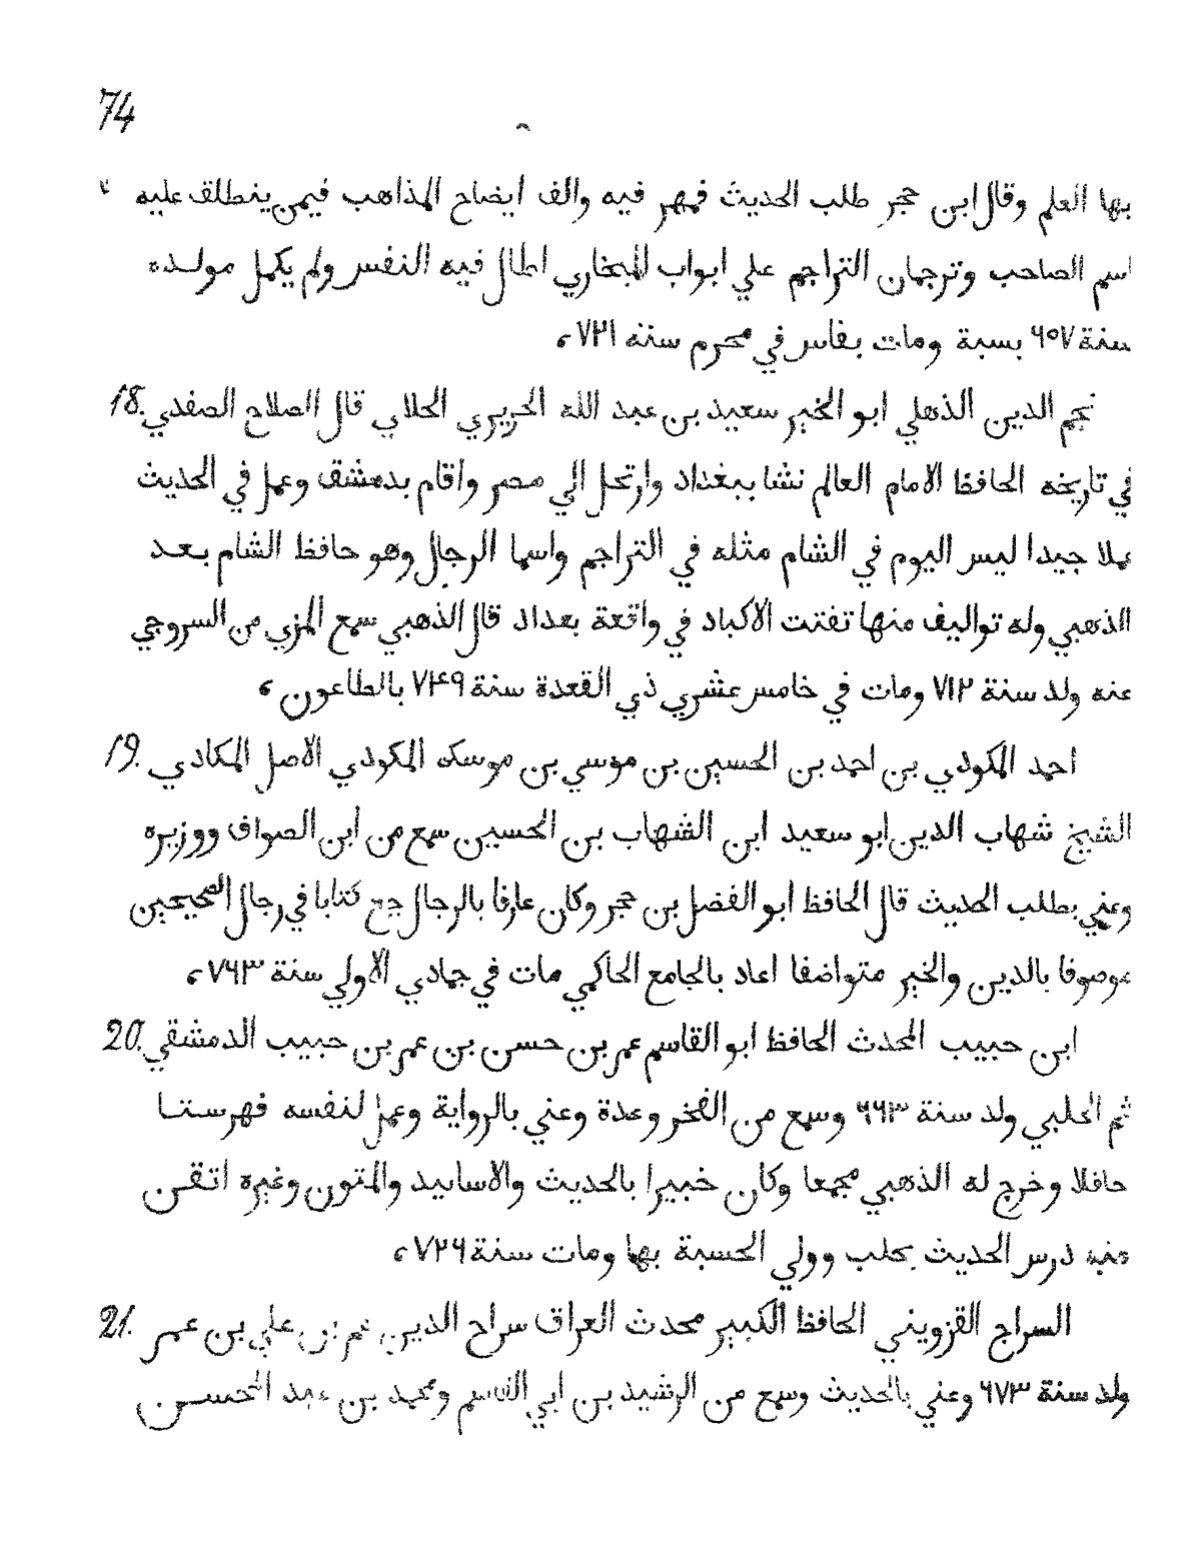 74
بها العلم وقال ابن حجر طلب الحديث فمهر فيه والف ايضاح المذاهب فيمن ينطلق عليه
اسم الصاحب وترجمان التراجم علي ابواب البخاري اطال فيه النفس ولم يكمل مولده
سنة ٦٥٧ بسبة ومات بفاس في محرم سنة ٧٢١،
نجم الدين الذهلي ابو الخير سعيد بن عبد الله الحريري الحلابي قال الصلاح الصفدي 18.
في تاريخه الحافظ الامام العالم نشا ببغداد وارتحل الي مصر واقام بدمشق وعمل في الحديث
عملا جيدا ليس اليوم في الشام مثله في التراجم واسما الرجال وهو حافظ الشام بعد
الذهبي وله تواليف منها تفتت الاكباد في واقعة بعداد قال الذهبي سمع المزي من السروجي
عنه ولد سنة ٧١٢ ومات في خامس عشري ذي القعدة سنة ٧٤٩ بالطاعون،
احمد المكودي بن احمد بن الحسين بن موسي بن موسكه المكودي الاصل المكادي 19.
الشيخ شهاب الدين ابو سعيد ابن الشهاب بن الحسين سمع من ابن الصواف ووزيره
وعني بطلب الحديث قال الحافظ ابو الفضل بن حجر وكان عارفا بالرجال جمع كتابا في رجال الصحيحين
موصوفا بالدين والخير متواضفا اعاد بالجامع الحاكمي مات في جمادي الاولي سنة ٧٦٣،
ابن حبيب المحدث الحافظ ابو القاسم عمر بن حسن بن عمر بن حبيب الدمشقي 20.
ثم الحلبي ولد سنة ٦٦٣ وسمع من الفخر وعدة وعني بالرواية وعمل لنفسه فهرستا
حافلا وخرج له الذهبي مجمعا وكان خبيرا بالحديث والاسانيد والمتون وغيره اتقن
منه درس الحديث بحلب وولي الحسبة بها ومات سنة ٧٢٦،
السراج القزويني الحافظ الكبير محدث العراق سراج الدين عمر بن علي بن عمر 21.
ولد سنة ٦٧٣ وعني بالحديث وسمع من الرشيد بن ابي القاسم ومحمد بن عبد المحسن